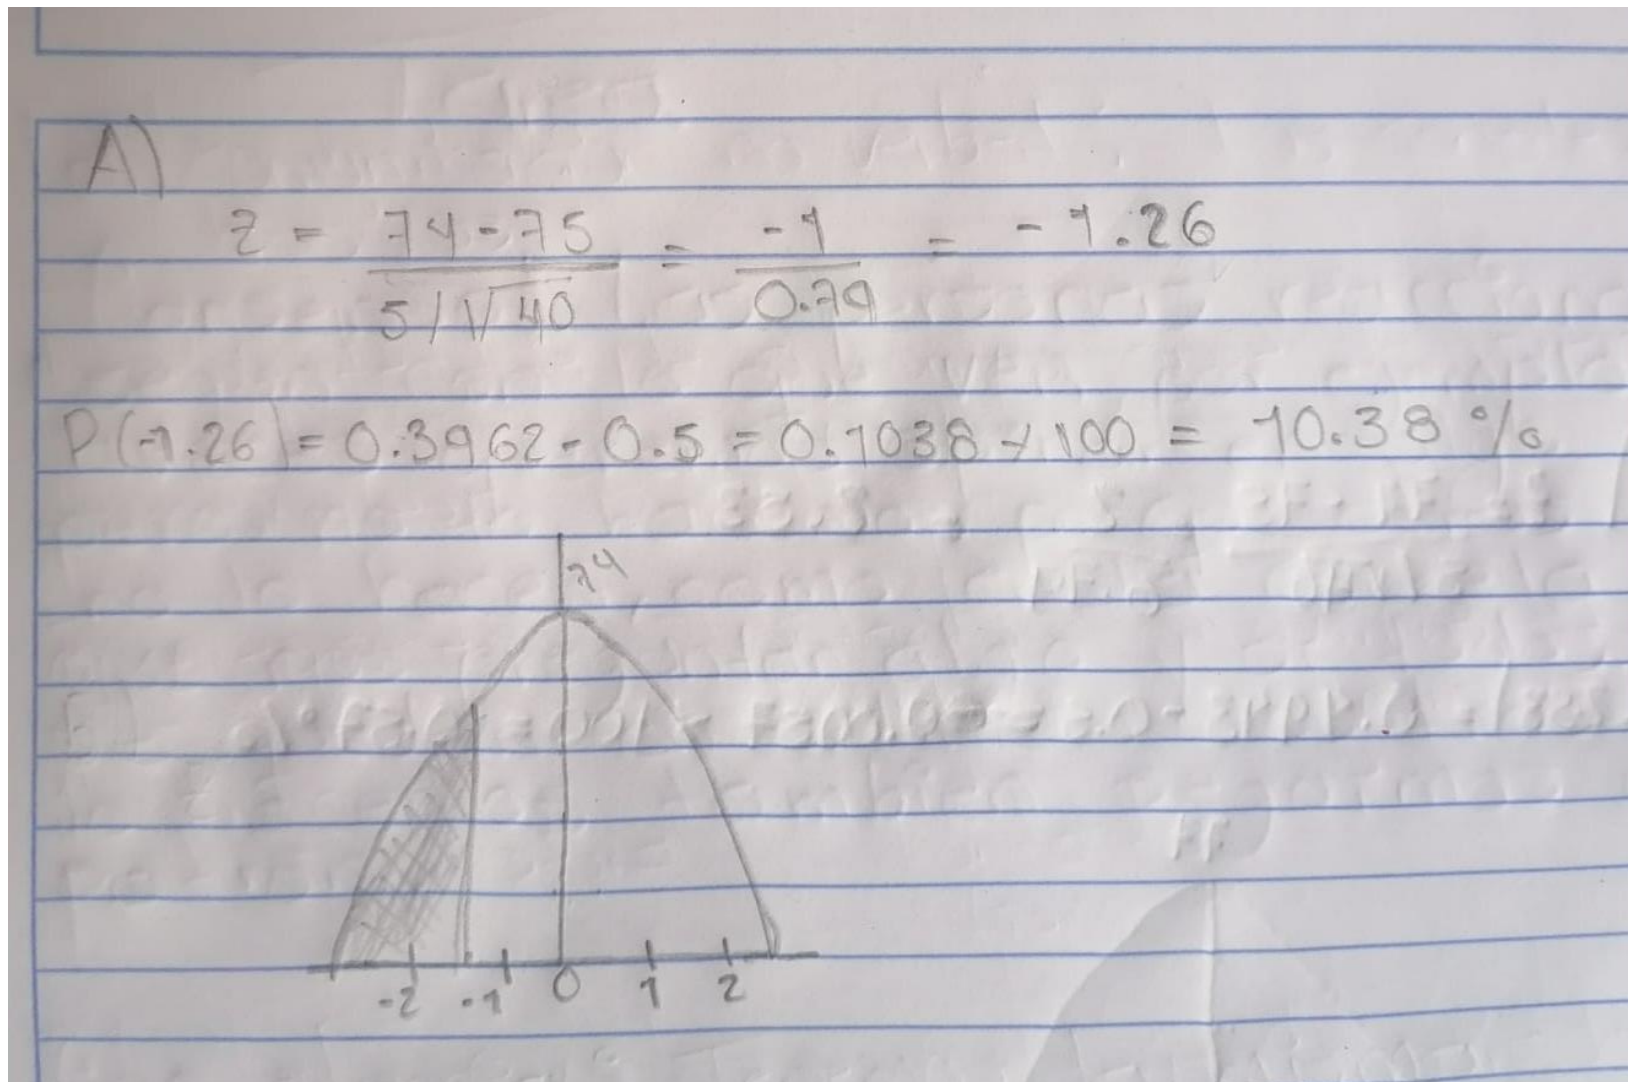 A)
z = 74-75 / 5/√40 = -1 / 0.79 = -1.26
P(-1.26) = 0.3962 - 0.5 = 0.1038 + 100 = 10.38 %
74
-2 -1 0 1 2